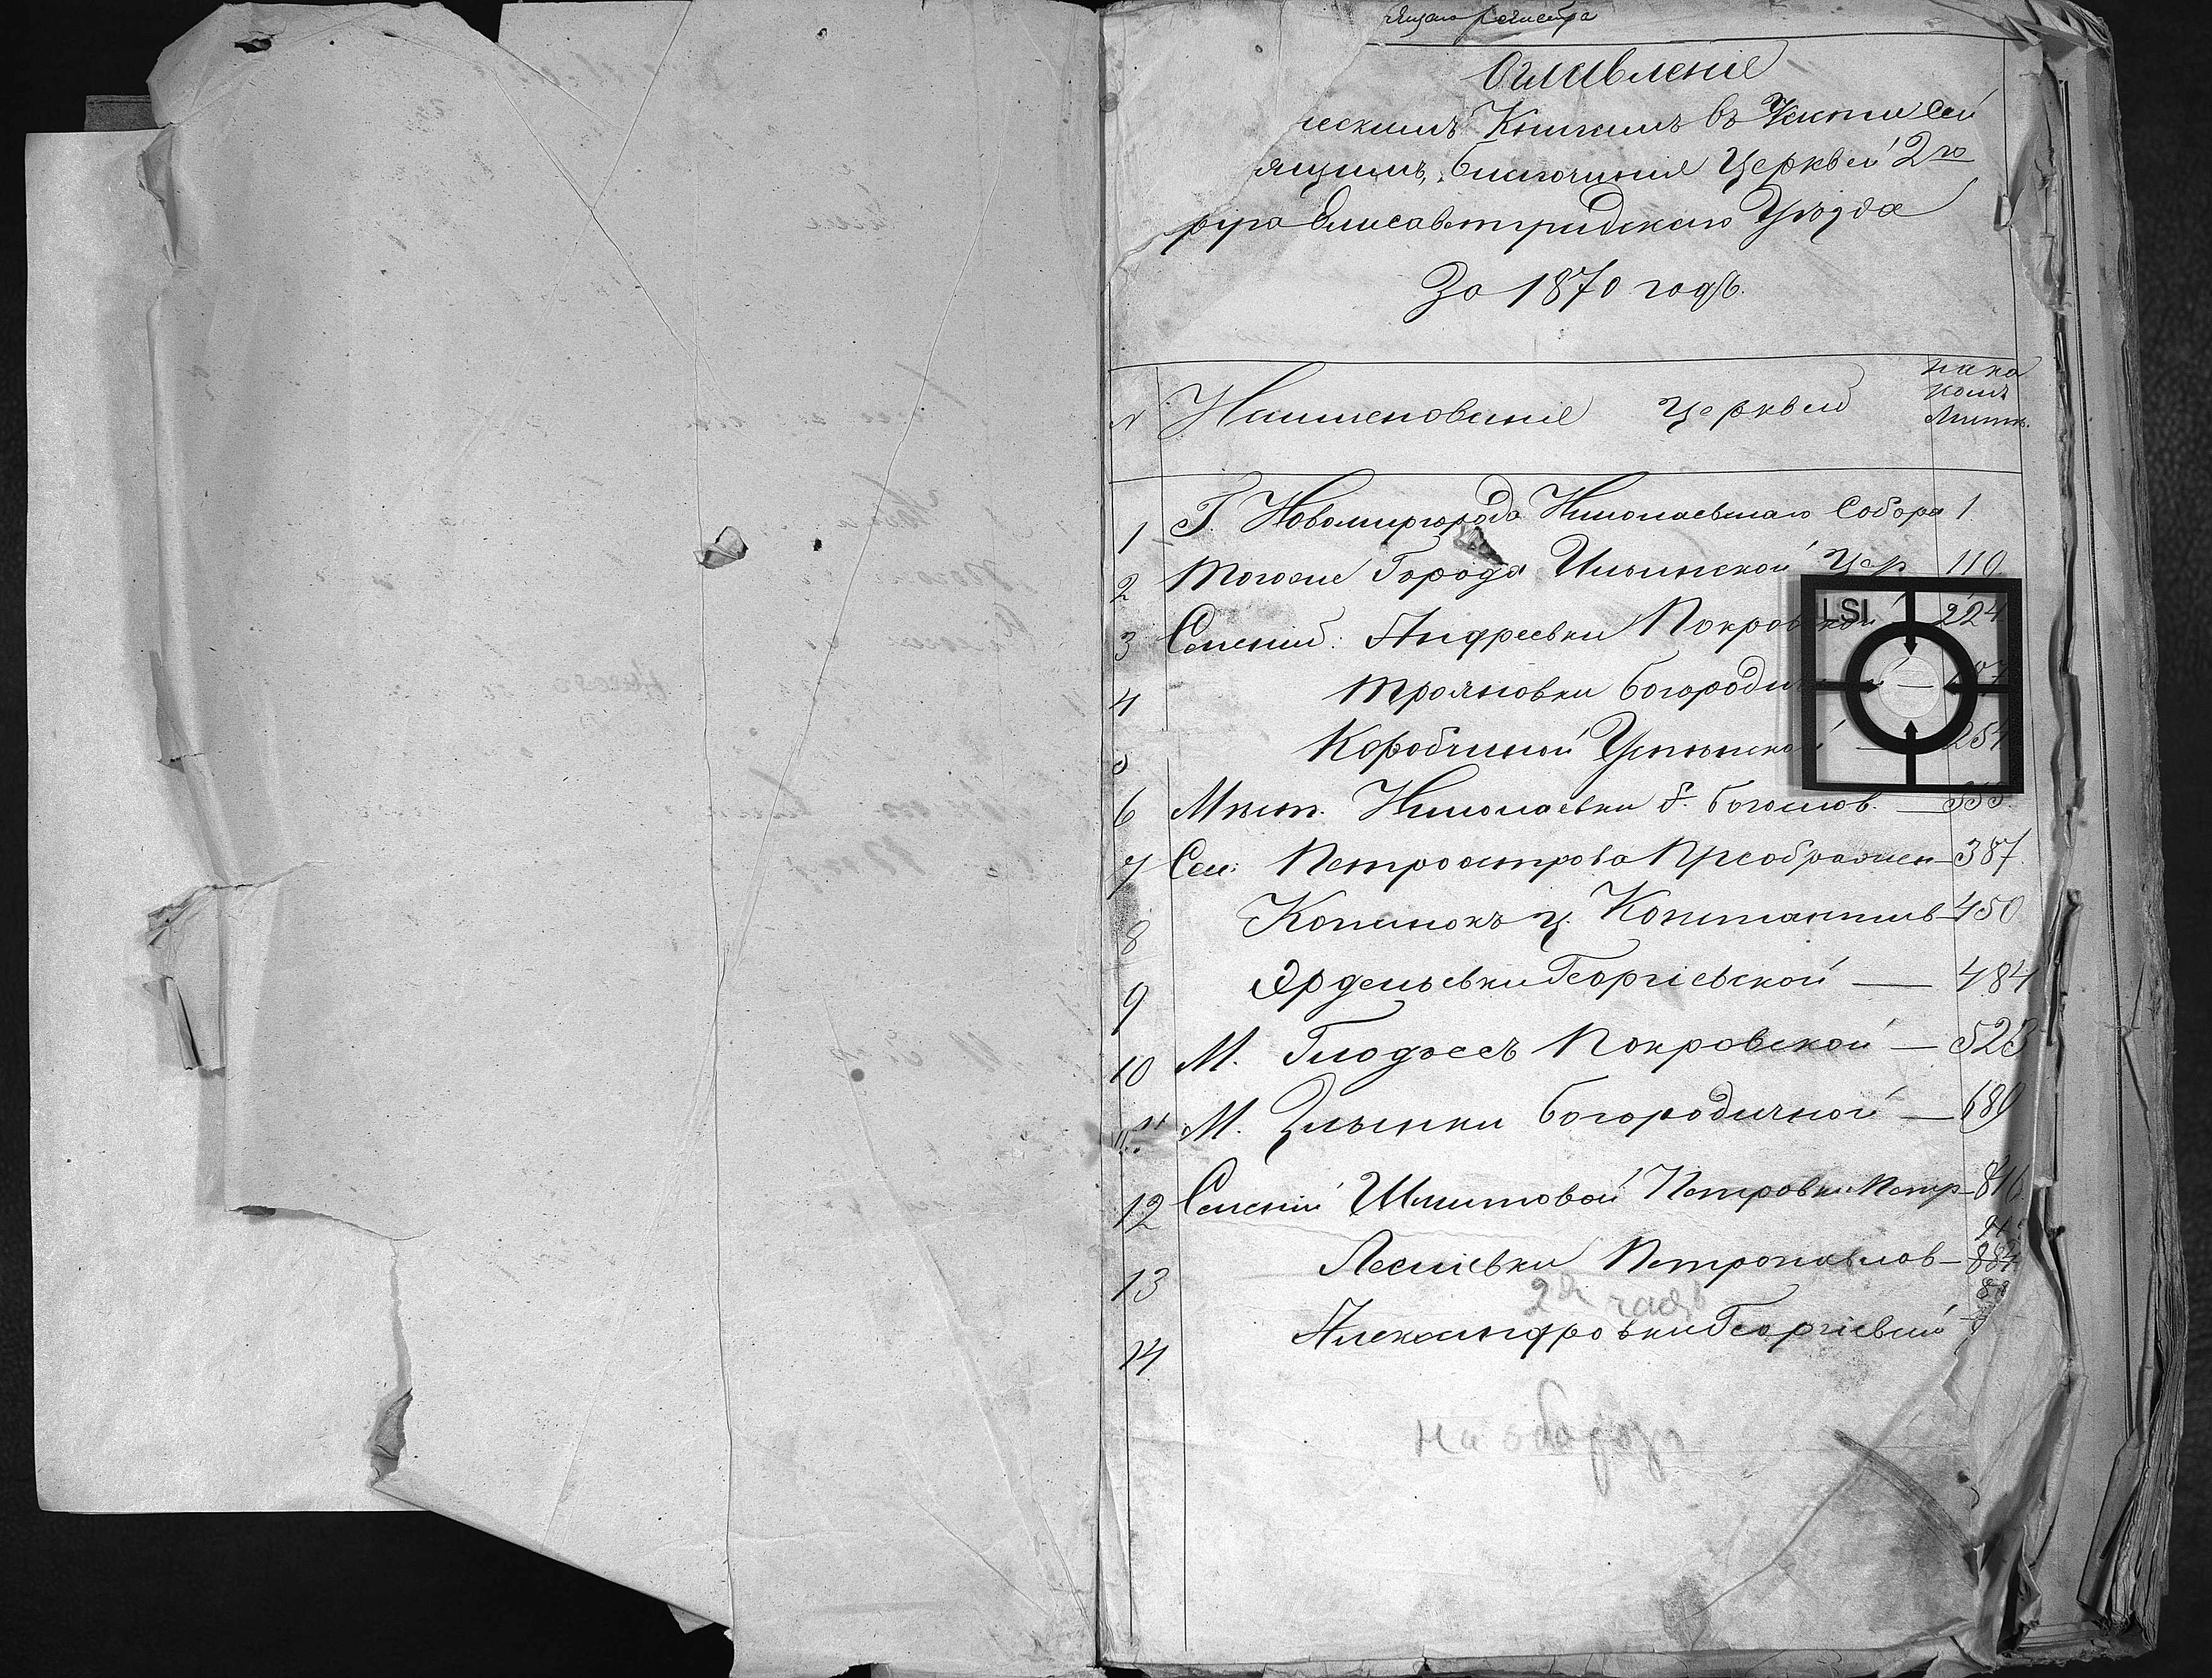 Оглавленіе
ческимъ Книгамъ въ Части сей
ящимъ, благочинія Церквей 2го
руга Елисаветградскаго Уѣзда
За 1870 годъ.
№ Наименованіе церквей на ка комъ листѣ.
1 Г. Новомиргорода Николаевскаго Собора 1
2 Тогоже Города Ильинской Цер 110
3 Селеній: Андреевки Покровской 224
4 Трояновки Богородич
5 Коробчиной Успенской — 254
6 Мѣст. Николаевки І. Богослов. — 353.
7 Сел: Петроострова Преображен — 387.
8 Копанокъ ц. Константинов — 450
9 Эрделевки Георгіевской — 484
10 М. Глодоссъ Покровской — 523
11 М. Злынки Богородичной — 689
12 Селеній Шмитовой Петровки Петр — 816
13 Лесіевки Петропавлов — 884
2я часть
14 Александровки Георгіевской
на оборотѣ
LSI